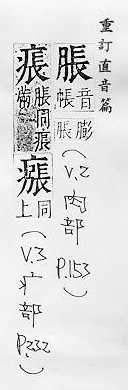 重訂直音篇
脹
音帳
膨脹
(V.2 肉部 P.153)
痮
脹同
瘬
同上
(V.3 疒部 P.232)